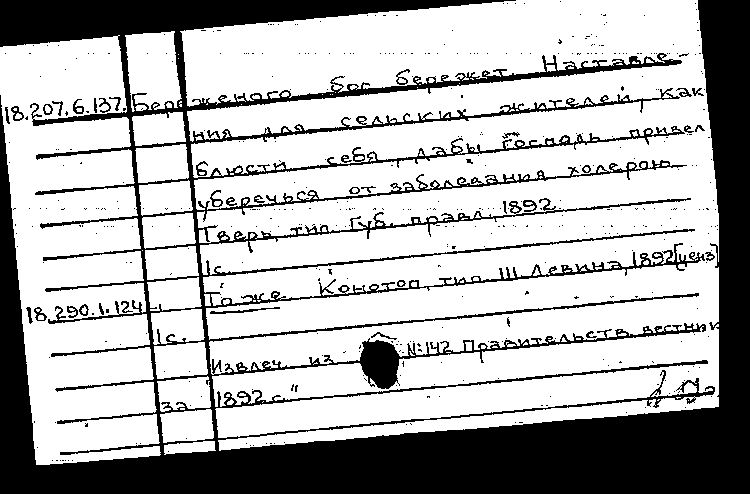 18.207.6.137. Береженого бог бережет. Наставле-
ния для сельских жителей, как
блюсти себя, дабы Господь привел
уберечься от заболевания холерою
Тверь, тип. Губ. правл., 1892
1с.
18.290.1.124 То же. Конотоп, тип. Ш. Левина, 1892 [ценз]
1с.
Извлеч. из №142 Правительств. вестник
за 1892 г."